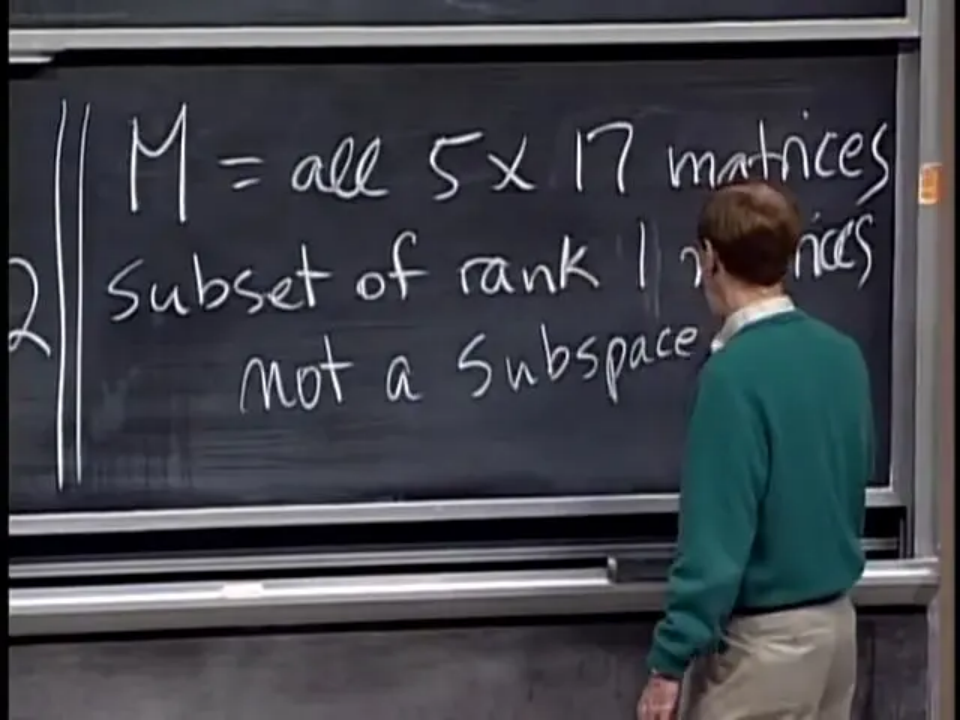 M = all 5 x 17 matrices
subset of rank 1
not a subspace
2